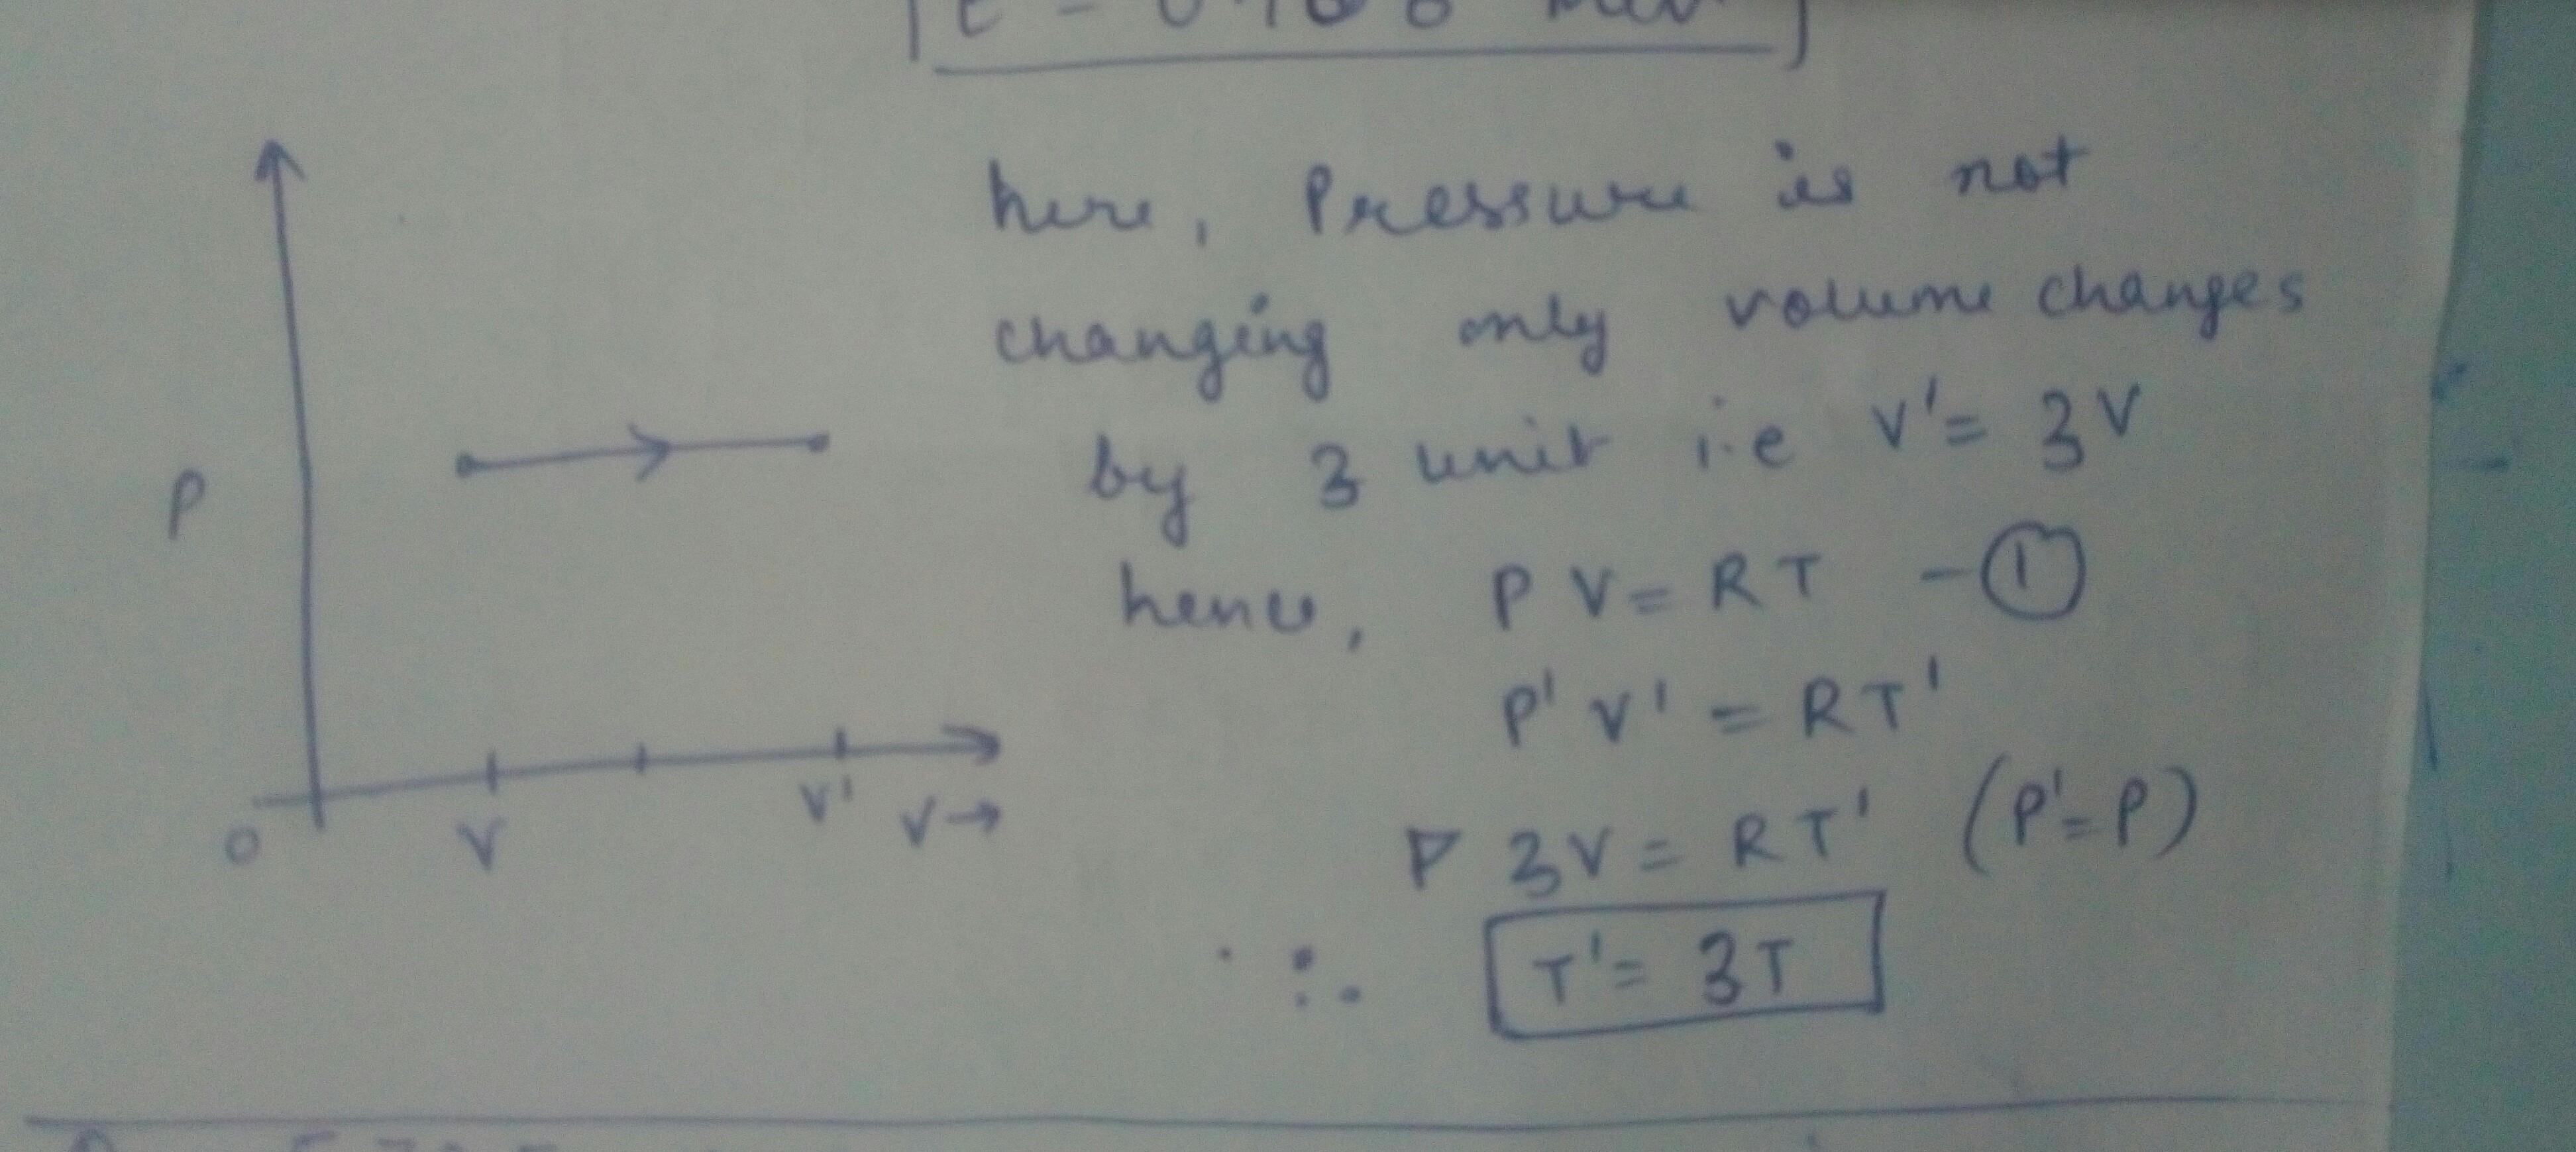 here, Pressure is not
changing only volume changes
by 3 unit i.e V' = 3V
hence, PV = RT - ①
P'V' = RT'
P 3V = RT' (P' = P)
∴ T' = 3T
P
O V V' V→